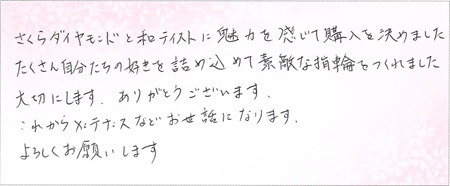 さくらダイヤモンドと和テイストに魅力を感じて購入を決めました
たくさん自分たちの好きを詰め込めて素敵な指輪をつくれました
大切にします．ありがとうございます．
これからメンテナンスなどお世話になります．
よろしくお願いします